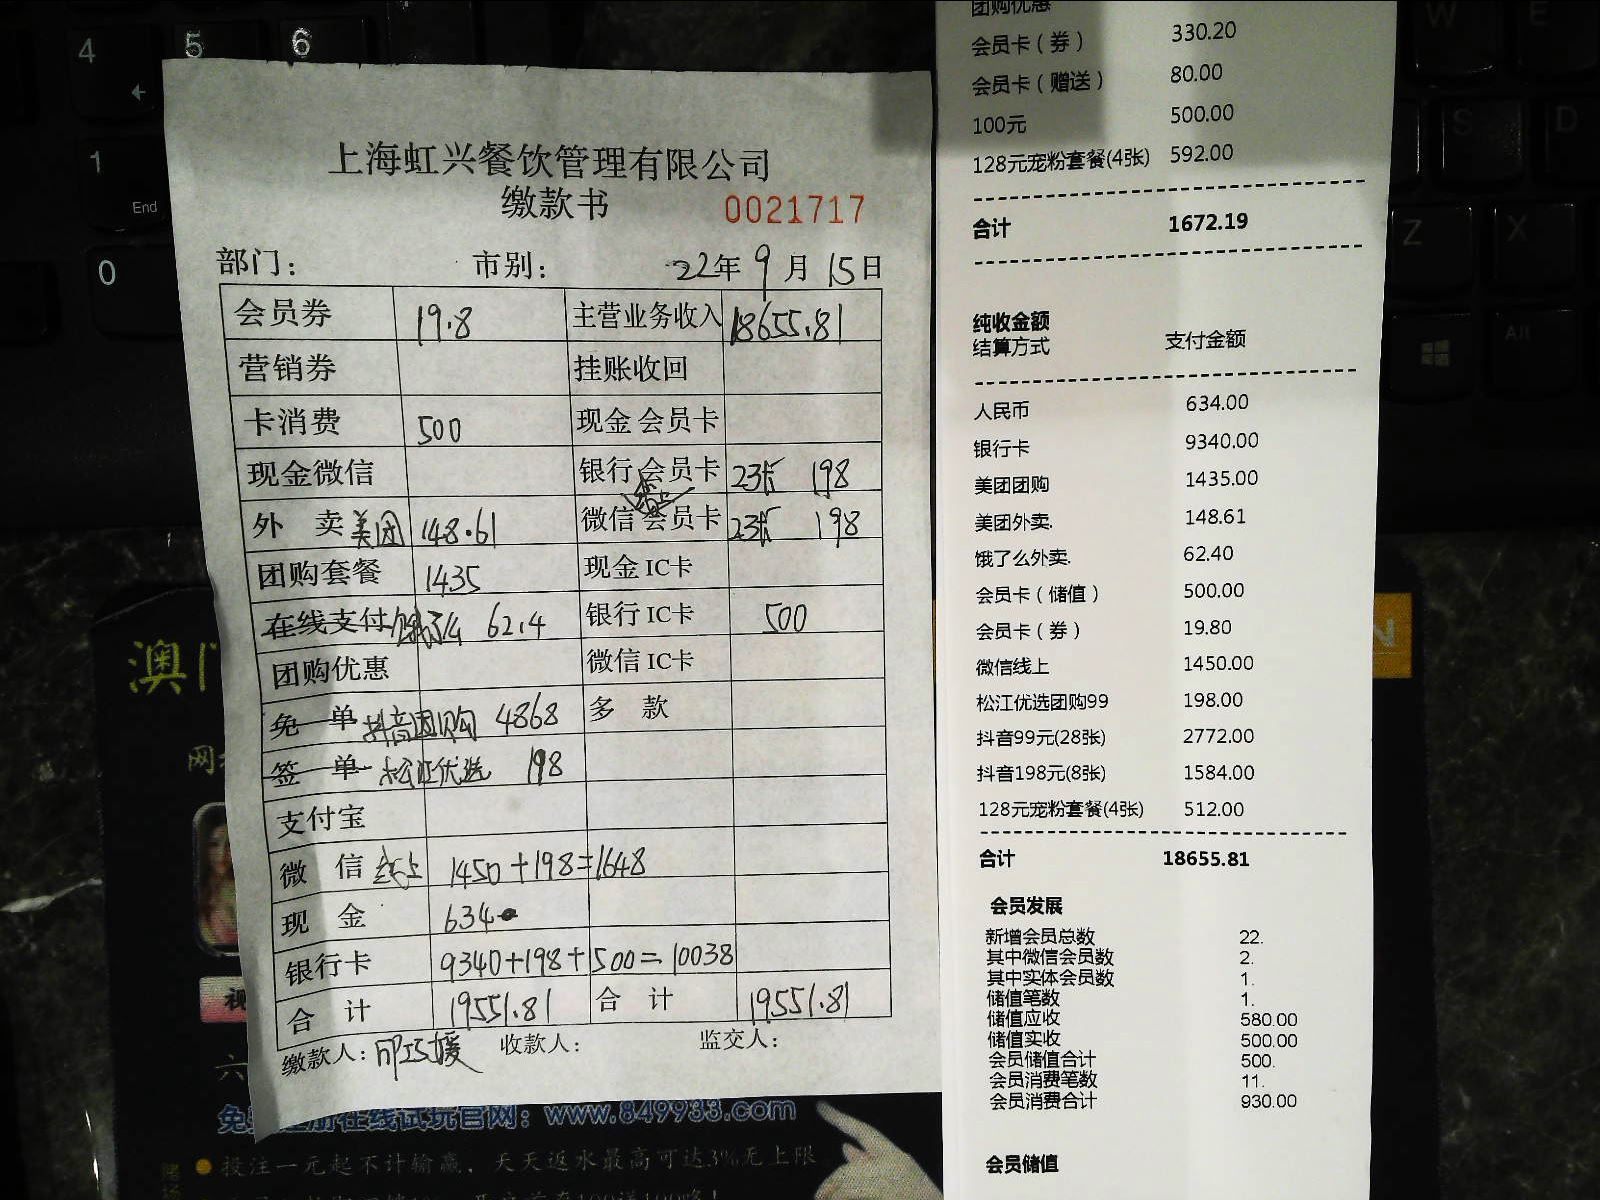 上海虹兴餐饮管理有限公司
缴款书 0021717
部门： 市别： 22年 9月 15日
会员券 19.8 主营业务收入 18655.81
营销券 挂账收回
卡消费 500 现金会员卡
现金微信 银行会员卡 23张 198
外 卖 美团 148.61 微信会员卡 23张 198
团购套餐 1435 现金IC卡
在线支付 饿了么 62.4 银行IC卡 500
团购优惠 微信IC卡
免 单 抖音团购 4868 多 款
签 单 松江优选 198
支付宝
微 信 1450+198=1648
现 金 634
银行卡 9340+198+500=10038
合 计 19551.81 合 计 19551.81
缴款人： 收款人： 监交人：
团购优惠
会员卡（券） 330.20
会员卡（赠送） 80.00
100元 500.00
128元宠粉套餐(4张) 592.00
合计 1672.19
纯收金额
结算方式 支付金额
人民币 634.00
银行卡 9340.00
美团团购 1435.00
美团外卖. 148.61
饿了么外卖. 62.40
会员卡（储值） 500.00
会员卡（券） 19.80
微信线上 1450.00
松江优选团购99 198.00
抖音99元(28张) 2772.00
抖音198元(8张) 1584.00
128元宠粉套餐(4张) 512.00
合计 18655.81
会员发展
新增会员总数 22.
其中微信会员数 2.
其中实体会员数 1.
储值笔数 1.
储值应收 580.00
储值实收 500.00
会员储值合计 500.
会员消费笔数 11.
会员消费合计 930.00
会员储值
4 5 6
1 End
0
W E
S D
Z X
Alt
澳门
网
视
六
N
在线试玩官网：www.849933.com
投注一元起不计输赢，天天返水最高可达3%无上限